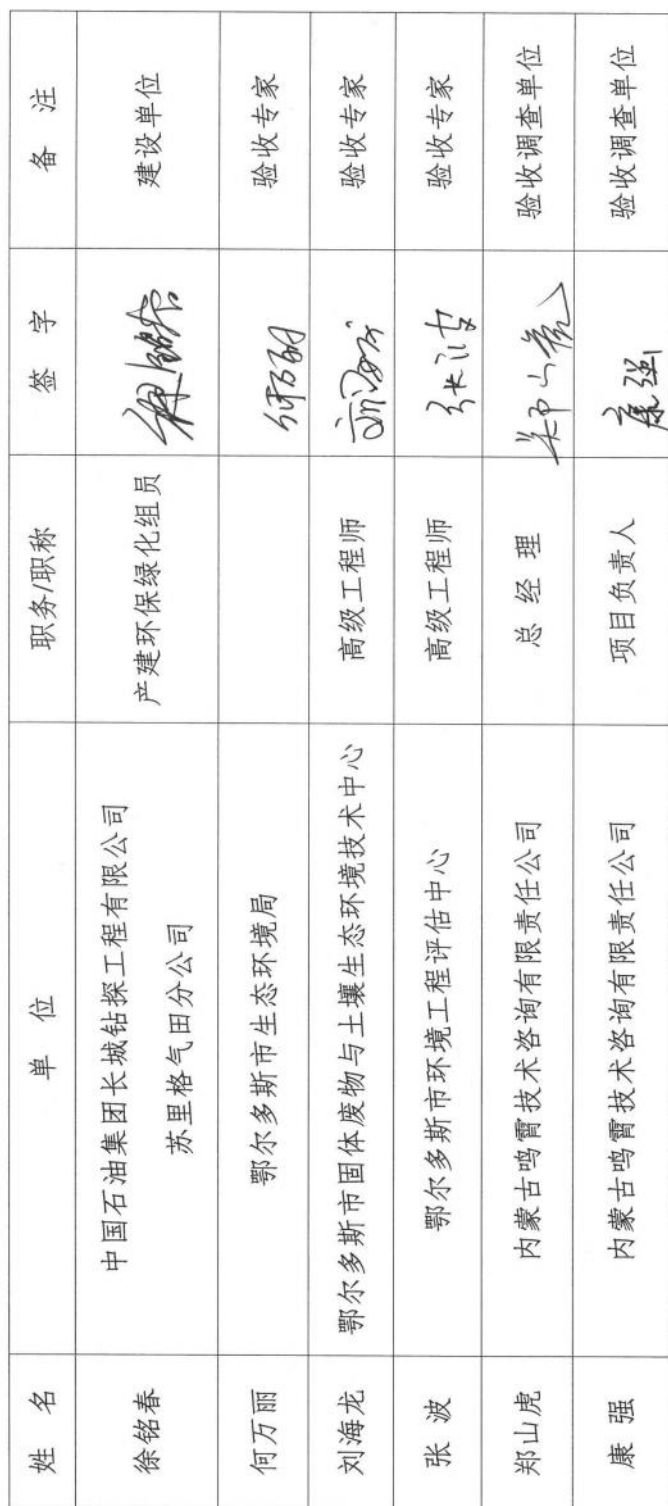 姓 名 单 位 职务/职称 签 字 备 注
徐铭春 中国石油集团长城钻探工程有限公司 产建环保绿化组员 徐铭春 建设单位
苏里格气田分公司
何万丽 鄂尔多斯市生态环境局 何万丽 验收专家
刘海龙 鄂尔多斯市固体废物与土壤生态环境技术中心 高级工程师 刘海龙 验收专家
张 波 鄂尔多斯市环境工程评估中心 高级工程师 张波 验收专家
郑山虎 内蒙古鸣霄技术咨询有限责任公司 总 经 理 郑山虎 验收调查单位
康 强 内蒙古鸣霄技术咨询有限责任公司 项目负责人 康强 验收调查单位